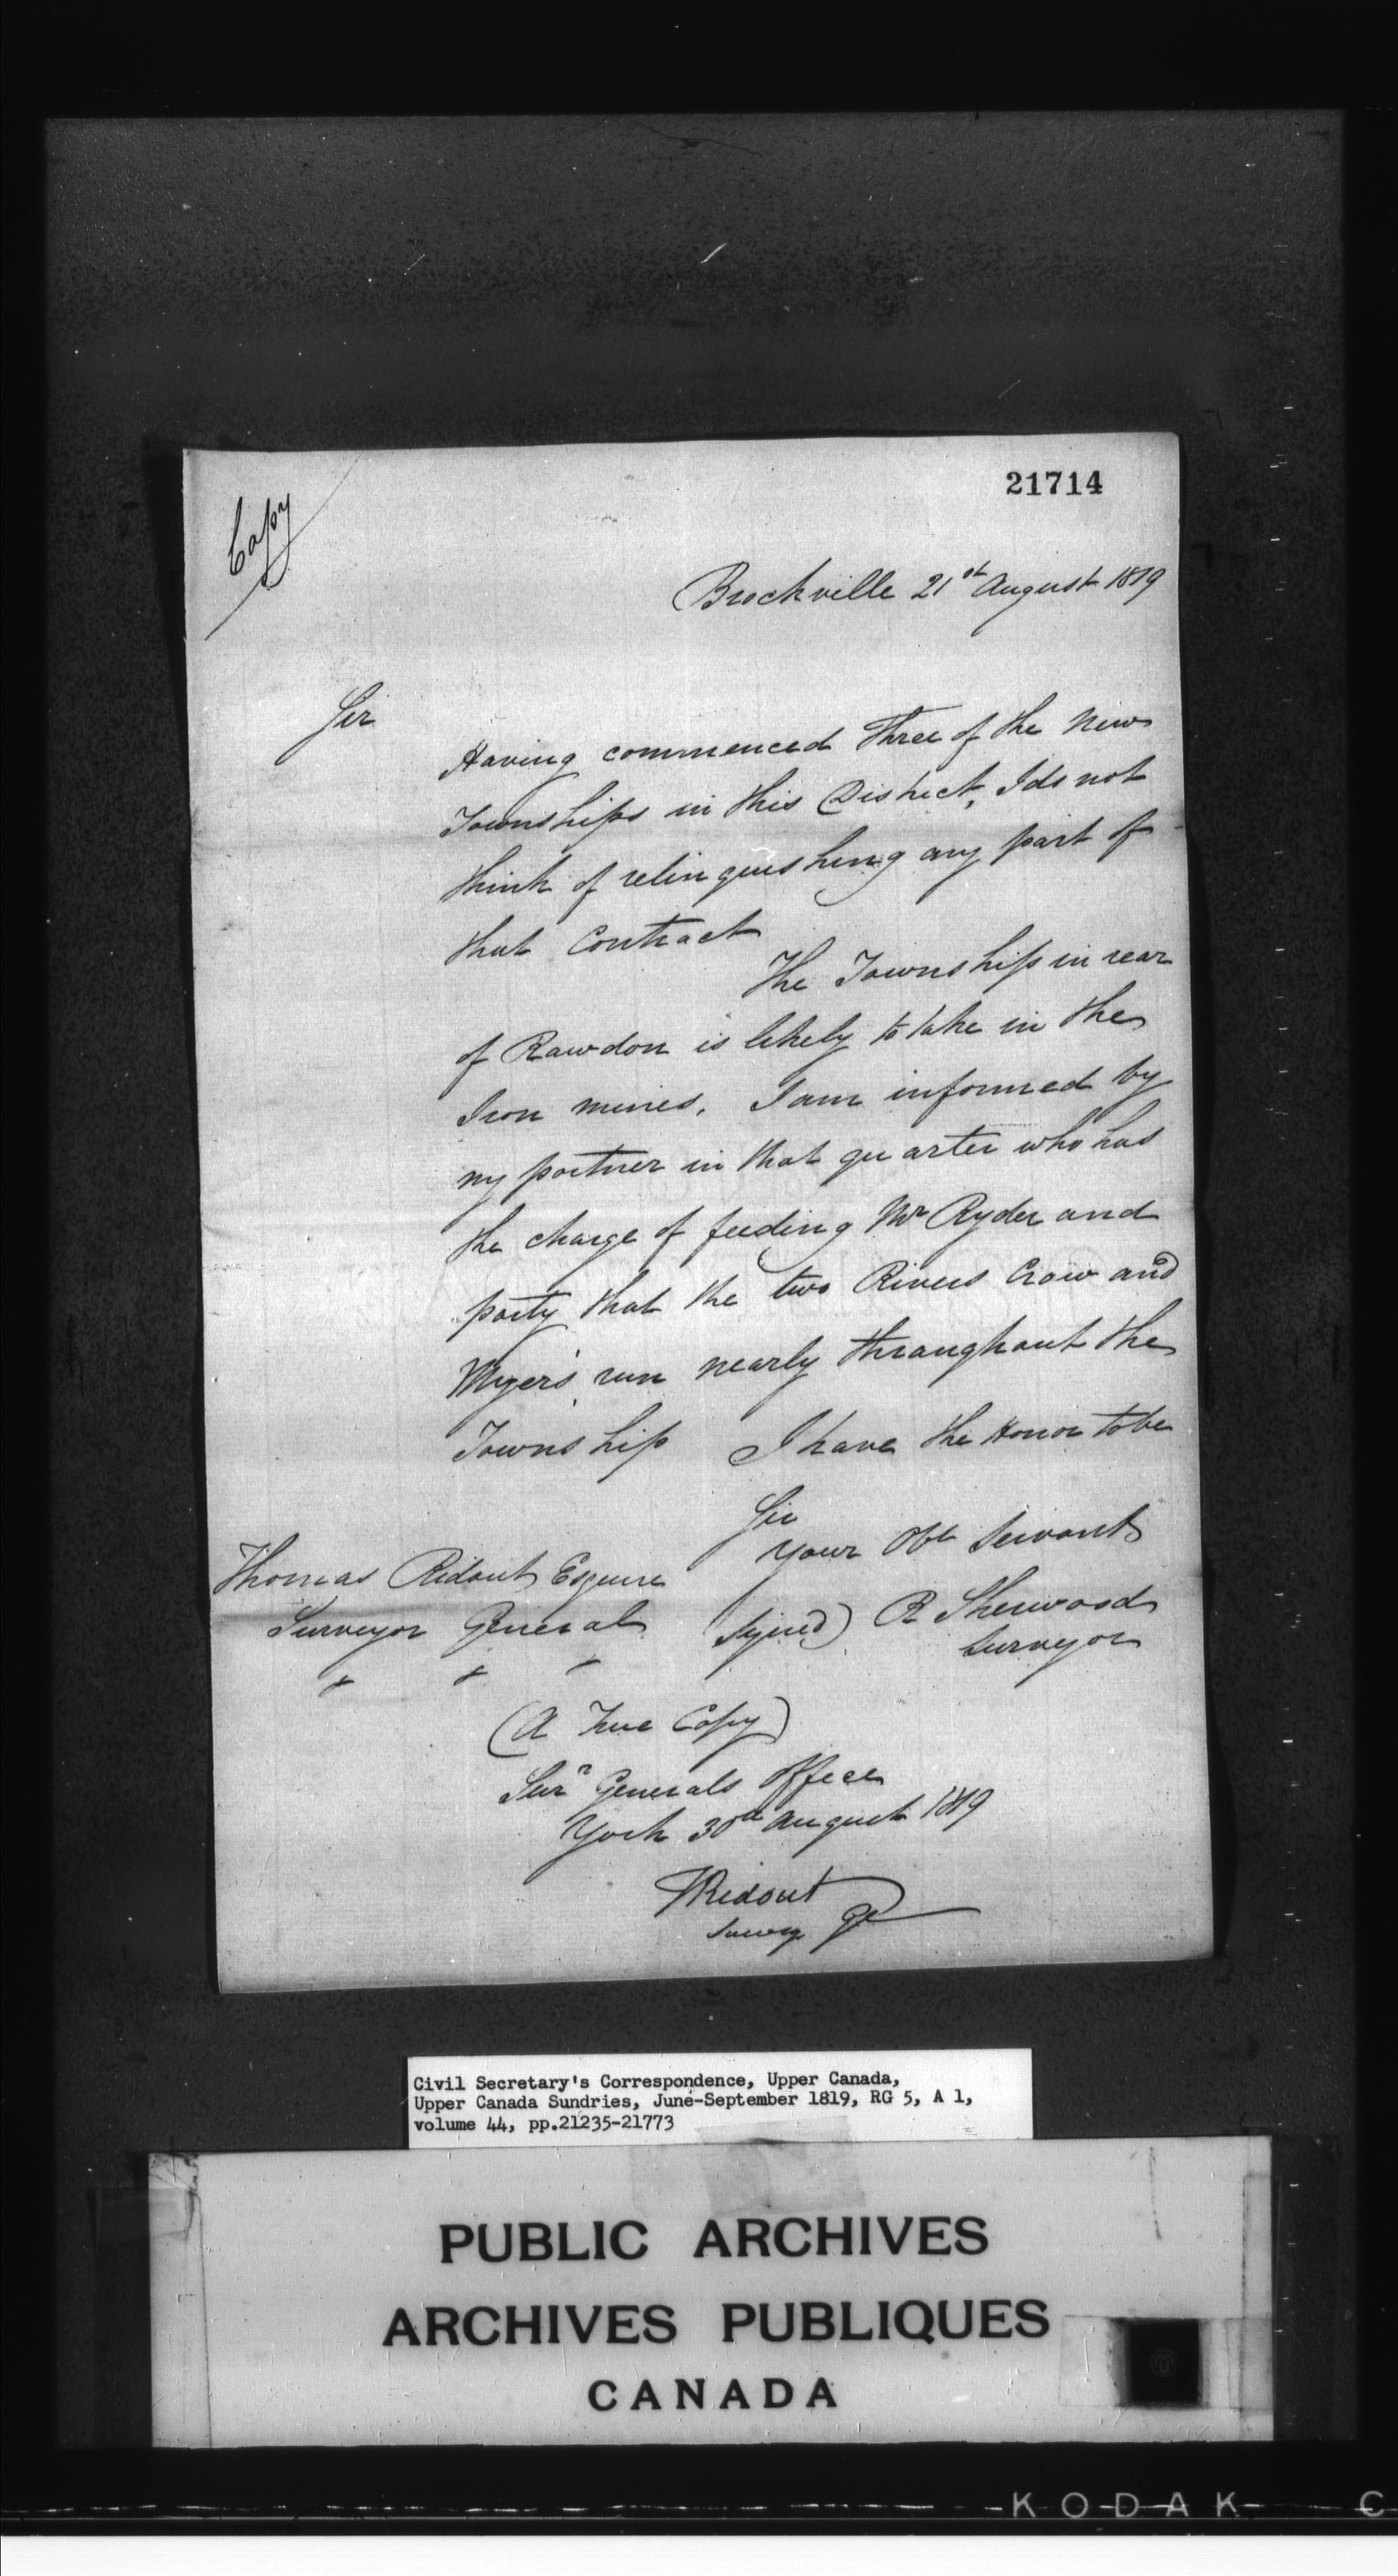 21714
Copy
Brockville 21st August 1819
Sir
Having commenced Three of the New
Townships in this District, I do not
think of relinquishing any part of
that Contract
The Township in rear
of Rawdon is likely to take in the
Iron mines, I am informed by
my partner in that quarter who has
the charge of feeding Mr Ryder and
party that the two Rivers Crow and
Myers' run nearly throughout the
Township I have the Honor to be
Sir
Your Obt Servant
Thomas Ridout Esquire
Surveyor General
Signed) R Sherwood
Surveyor
(A True Copy)
Surr Generals Office
York 30th August 1819
T Ridout
Surv Gl
Civil Secretary's Correspondence, Upper Canada,
Upper Canada Sundries, June-September 1819, RG 5, A 1,
volume 44, pp.21235-21773
PUBLIC ARCHIVES
ARCHIVES PUBLIQUES
CANADA
KODAK C